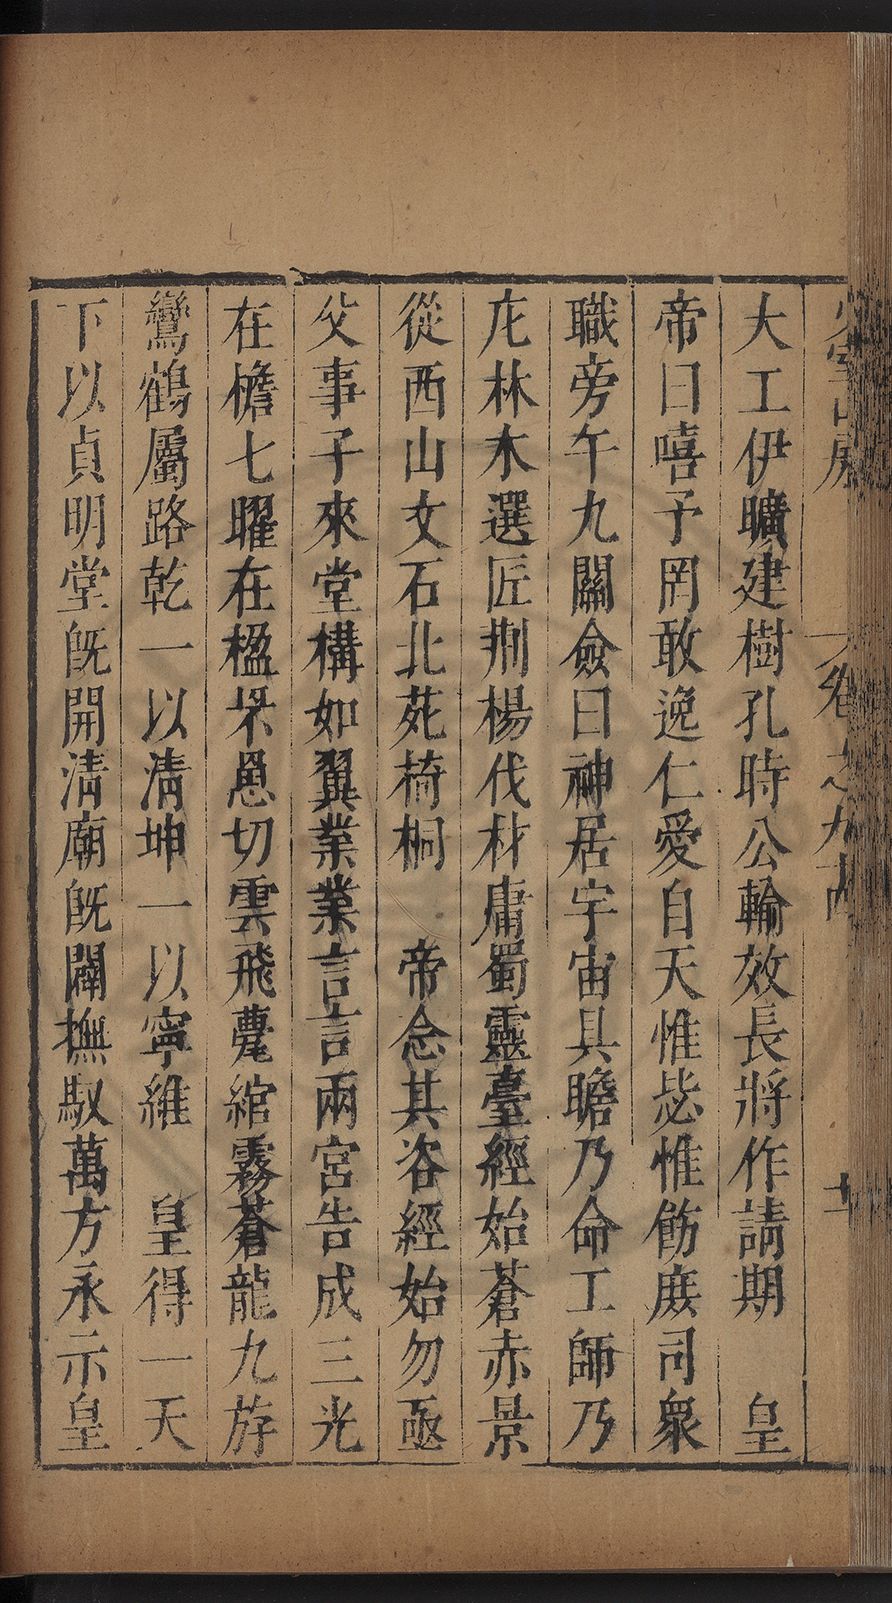 室山房 卷之九
大工伊曠建樹孔時公輸效長將作請期　皇
帝曰嘻予罔敢逸仁愛自天惟毖惟飭庶司衆
職旁午九關僉曰神居宇宙具瞻乃命工師乃
庀林木選匠荆楊伐材庸蜀靈臺經始蒼赤景
從西山文石北苑椅桐　帝念其咨經始勿亟
父事子來堂構如翼業業言言兩宮告成三光
在檐七曜在楹罘罳切雲飛甍綰霧蒼龍九斿
鸞鶴屬路乾一以淸坤一以寧維　皇得一天
下以貞明堂旣開淸廟旣闢撫馭萬方永示皇